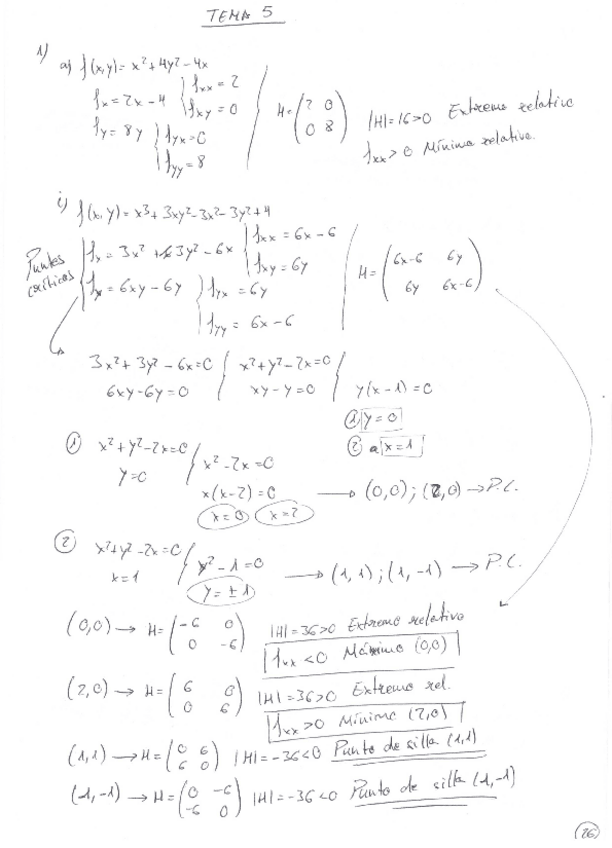 TEMA 5
1)
a) f(x,y) = x² + 4y² - 4x
fx = 2x - 4 { fxx = 2
fxy = 0
fy = 8y { fyx = 0
fyy = 8
H = (2 0
0 8)
|H| = 16 > 0 Extremo relativo
fxx > 0 Mínimo relativo.
i) f(x,y) = x³ + 3xy² - 3x² - 3y² + 4
Puntos críticos
fx = 3x² + 3y² - 6x { fxx = 6x - 6
fxy = 6y
fx = 6xy - 6y { fyx = 6y
fyy = 6x - 6
H = (6x-6 6y
6y 6x-6)
3x² + 3y² - 6x = 0 { x² + y² - 2x = 0
6xy - 6y = 0 xy - y = 0 { y(x - 1) = 0
① y = 0
② x = 1
① x² + y² - 2x = 0
y = 0 { x² - 2x = 0
x(x - 2) = 0 → (0,0) ; (2,0) → P.C.
x = 0 x = 2
② x² + y² - 2x = 0
x = 1 { y² - 1 = 0 → (1,1) ; (1,-1) → P.C.
y = ± 1
(0,0) → H = (-6 0
0 -6) |H| = 36 > 0 Extremo relativo
fxx < 0 Máximo (0,0)
(2,0) → H = (6 0
0 6) |H| = 36 > 0 Extremo rel.
fxx > 0 Mínimo (2,0)
(1,1) → H = (0 6
6 0) |H| = -36 < 0 Punto de silla (1,1)
(1,-1) → H = (0 -6
-6 0) |H| = -36 < 0 Punto de silla (1,-1)
26